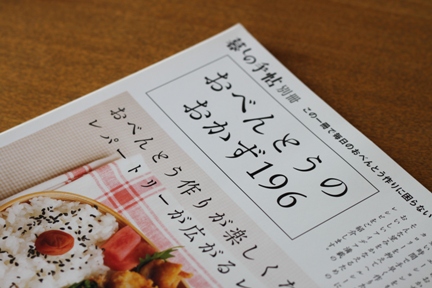 暮しの手帖 別冊
この一冊で毎日のおべんとう作りに困らない
おべんとうの
おかず196
おべんとう作りが楽しくな
レパートリーが広がるレ